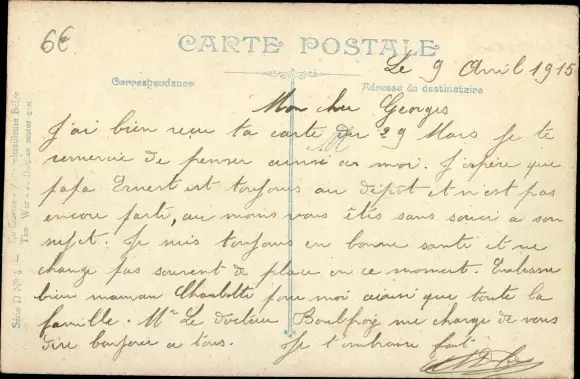 6€
CARTE POSTALE
Le 9 Avril 1915
Correspondance
Adresse du destinataire
Mon cher Georges
J'ai bien reçu ta carte du 29 Mars je te
remercie de penser ainsi a moi. J'espère que
papa Ernest est toujours au dépôt et n'est pas
encore parti, au moins vous êtes sans souci a son
sujet. Je suis toujours en bonne santé et ne
change pas souvent de place en ce moment. Embrasse
bien maman Charlotte pour moi ainsi que toute la
famille. Mr Le docteur me charge de vous
dire bonjour a tous. Je t'embrasse
Série D
The War Belgian motor gun